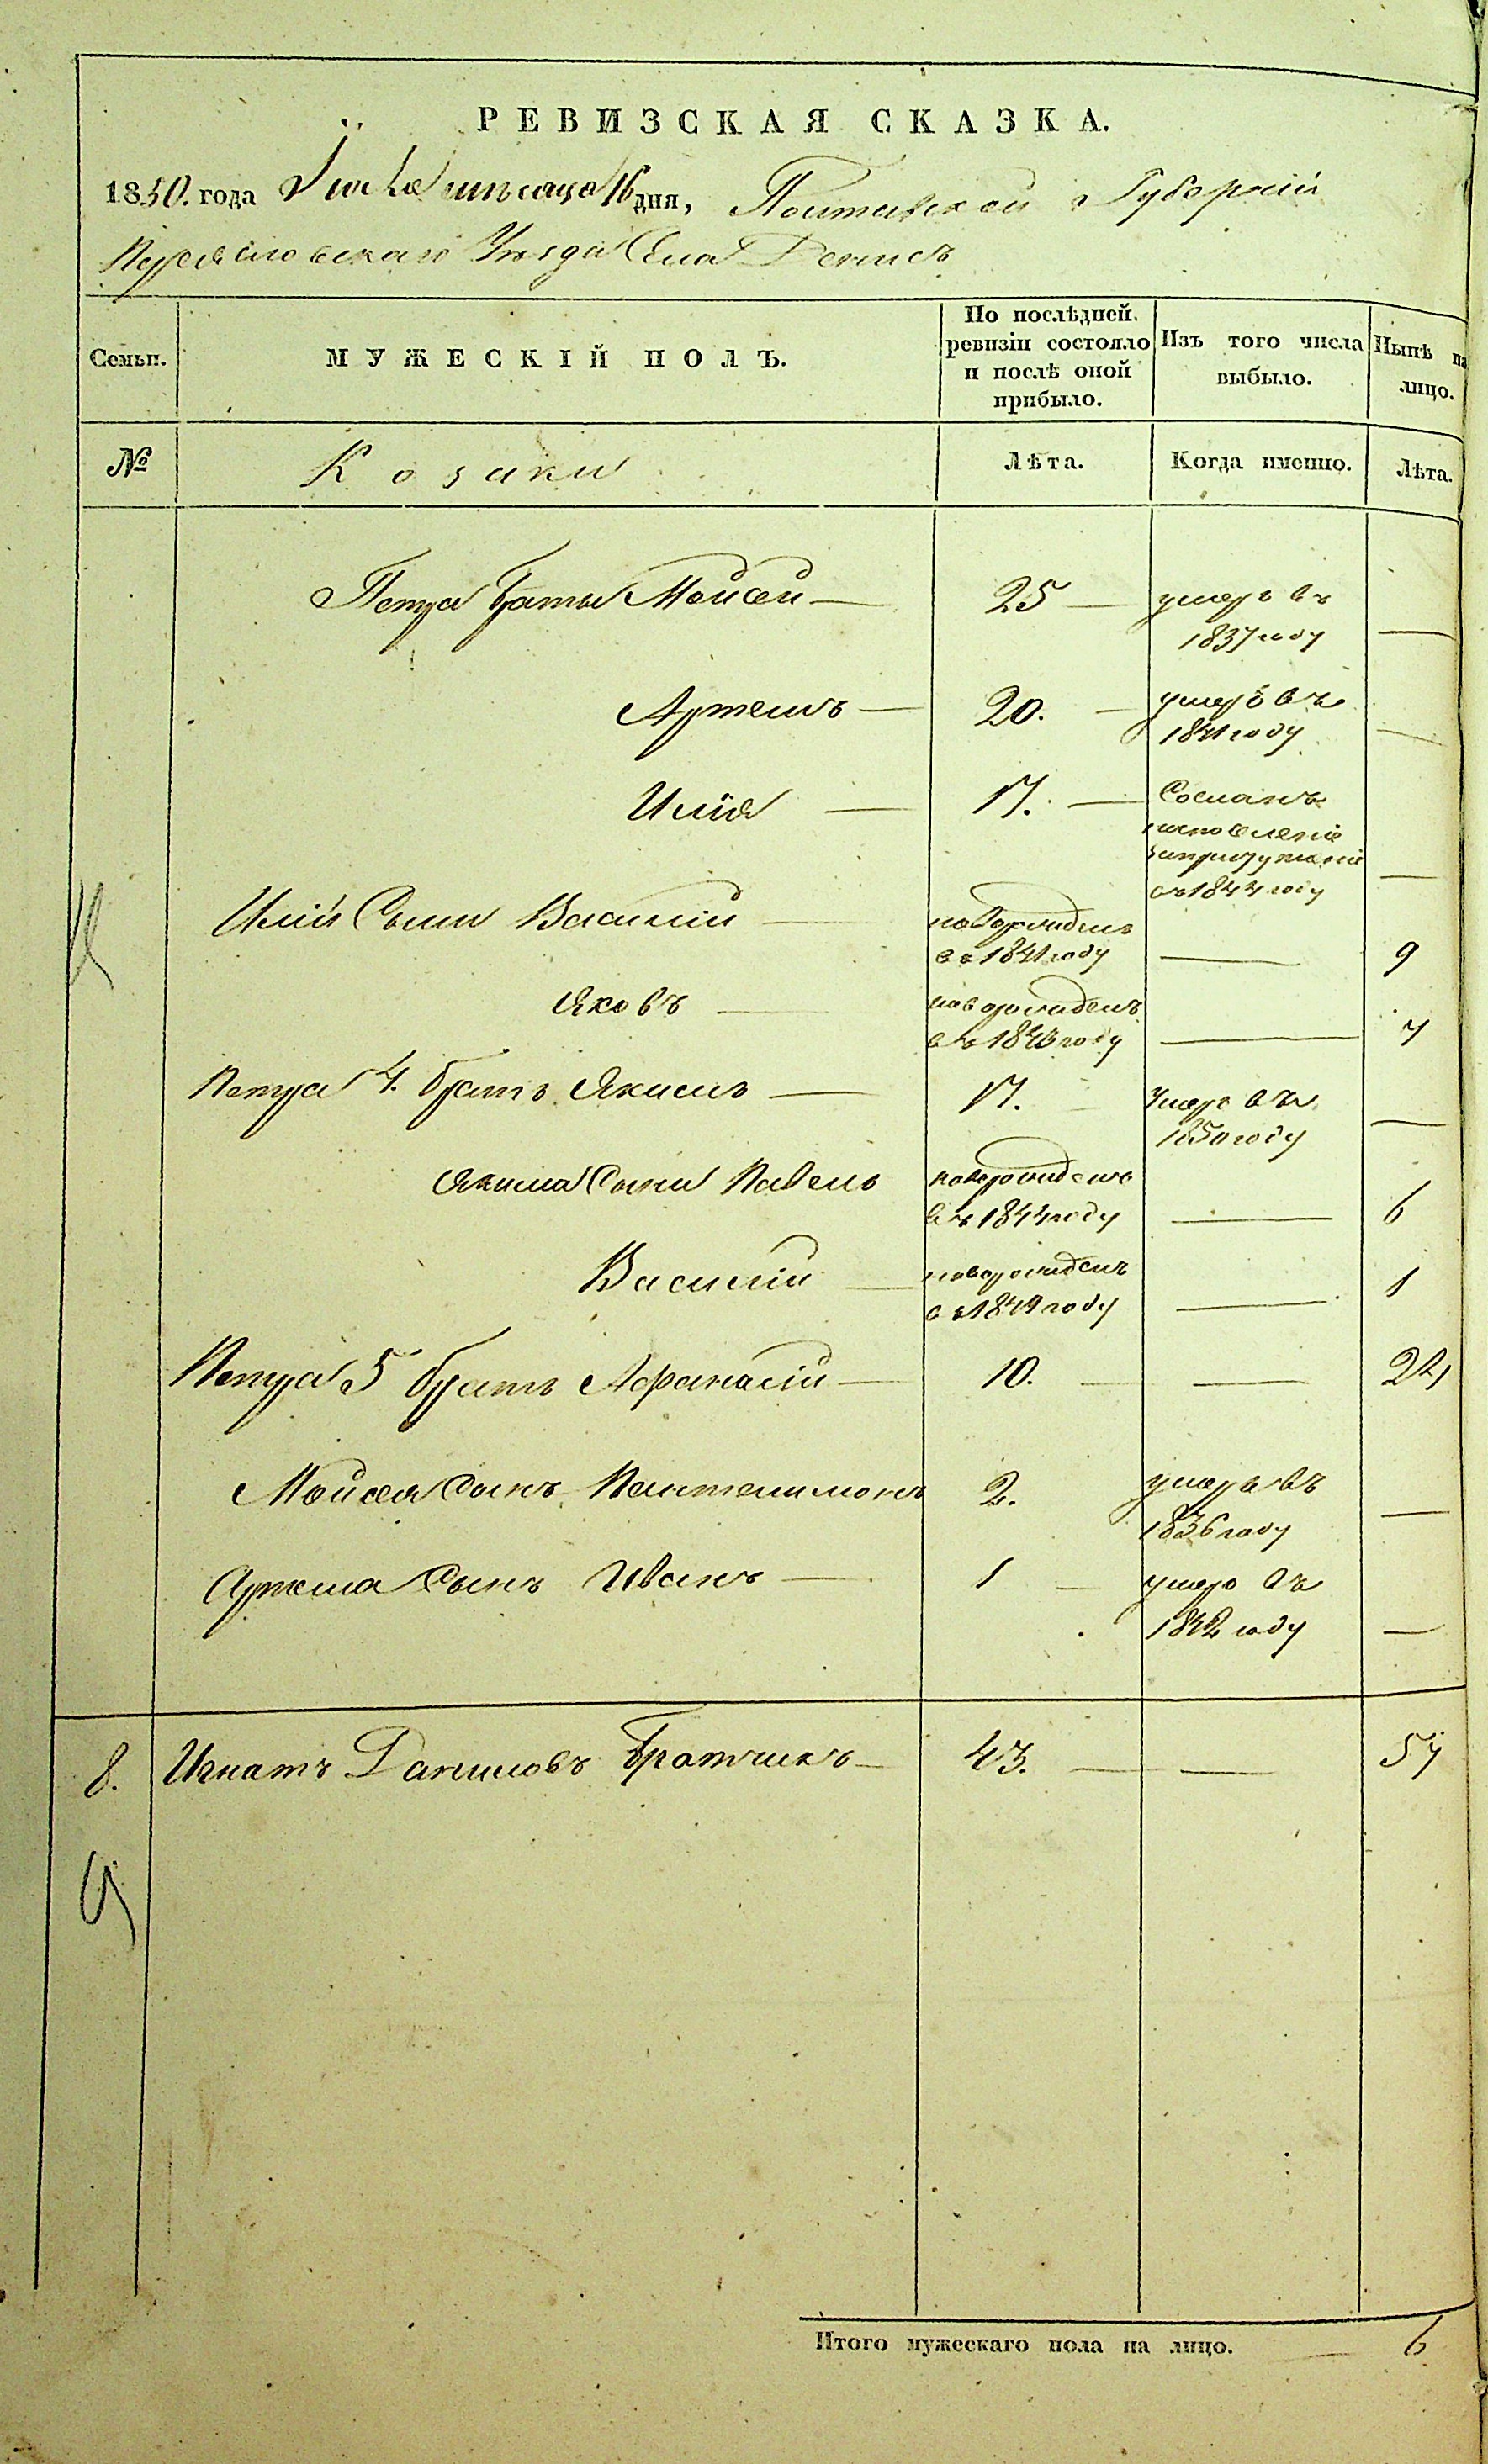 РЕВИЗСКАЯ СКАЗКА.
1850. года Іюля мѣсяца 16 дня, Полтавской Губерніи
Переяславскаго Уѣзда Села Денисъ
Семьи.
МУЖЕСКІЙ ПОЛЪ.
По послѣдней
ревизіи состояло
и послѣ оной
прибыло.
Изъ того числа
выбыло.
Нынѣ на
лицо.
№ Козаки Лѣта. Когда именно. Лѣта.
Петра Браты Мойсей — 25 — умеръ въ
1837 году —
Артемъ — 20. — умеръ въ
1841 году —
Илія — 17. — Сосланъ
на поселеніе
въ 1844 году —
Иліи Сыны Василій — новорожденъ
въ 1841 году — 9
Яковъ — новорожденъ
въ 1843 году — 7
Петра 4. братъ Якимъ — 17. — Умеръ въ
1850 году —
Якима Сыны Павелъ новорожденъ
въ 1844 году — 6
Василій — новорожденъ
въ 1849 году — 1
Петра 5 братъ Афанасій — 10. — — 24
Мойсея Сынъ Пантелимонъ 2. умеръ въ
1836 году —
Артема Сынъ Иванъ — 1 — умеръ въ
1842 году —
8. Игнатъ Даниловъ Братчикъ — 43. — — 57
Итого мужескаго пола на лицо. — 6